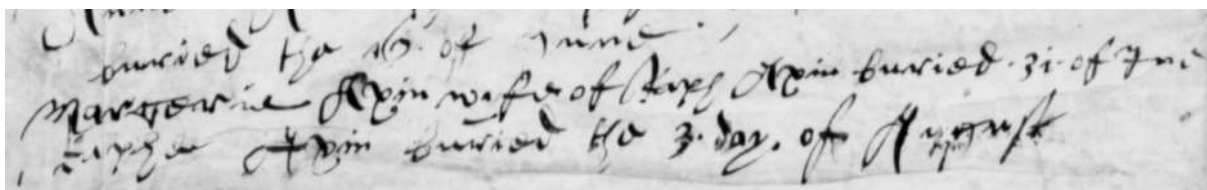 buried the 16. of June
Margerie Apin wife of Raph Apin buried. 21. of June
Raphe Apin buried the 3. day. of August